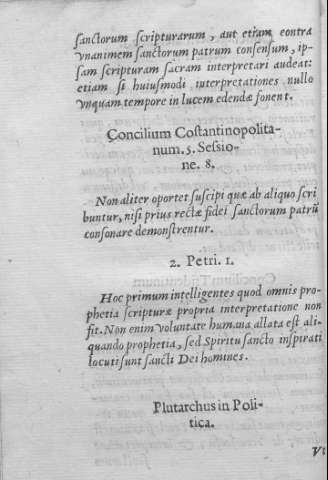 sanctorum scripturarum, aut etiam contra
vnanimem sanctorum patrum consensum, ip-
sam scripturam sacram interpretari audeat:
etiam si huiusmodi interpretationes nullo
vnquam tempore in lucem edendæ forent.
Concilium Costantinopolita-
num. 5. Sessio-
ne. 8.
Non aliter oportet suscipi quæ ab aliquo scri
buntur, nisi prius rectæ fidei sanctorum patrū
consonare demonstrentur.
2. Petri. 1.
Hoc primum intelligentes quod omnis pro-
phetia scripturæ propria interpretatione non
fit. Non enim voluntate humana allata est ali-
quando prophetia, sed Spiritu sancto inspirati
locuti sunt sancti Dei homines.
Plutarchus in Poli-
tica.